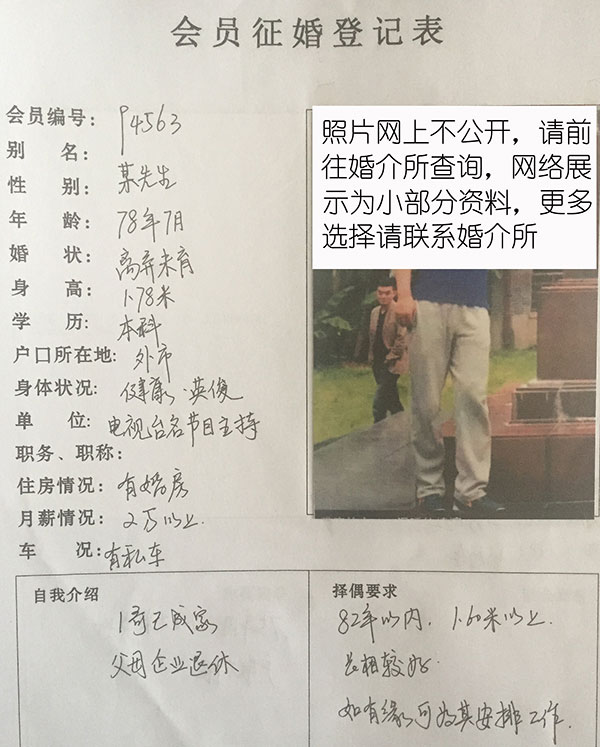 会员征婚登记表
会员编号: P4563
别 名: 某先生
性 别:
年 龄: 78年7月
婚 状: 离异未育
身 高: 1.78米
学 历: 本科
户口所在地: 外市
身体状况: 健康·英俊
单 位: 电视台名节目主持
职务、职称:
住房情况: 有婚房
月薪情况: 2万以上.
车 况: 有私车
照片网上不公开，请前
往婚介所查询，网络展
示为小部分资料，更多
选择请联系婚介所
自我介绍
1哥已成家
父母企业退休
择偶要求
82年以内. 1.60米以上.
长相较好.
如有缘可为其安排工作.